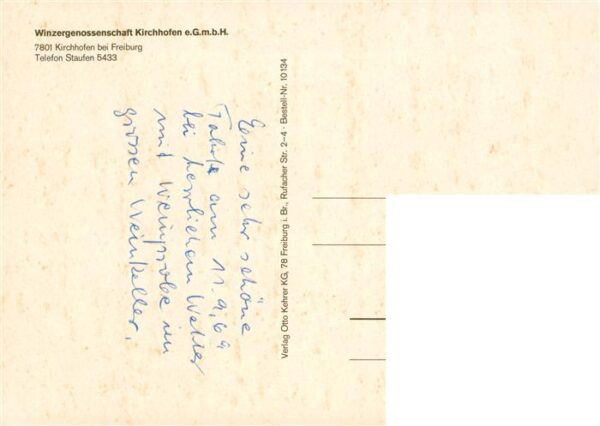 Winzergenossenschaft Kirchhofen e.G.m.b.H.
7801 Kirchhofen bei Freiburg
Telefon Staufen 5433
Eine sehr schöne
Fahrt am 11.9.69
bei herrlichem Wetter
mit Weinprobe im
grossen Weinkeller.
Verlag Otto Kehrer KG, 78 Freiburg i. Br., Rufacher Str. 2–4 · Bestell-Nr. 10134